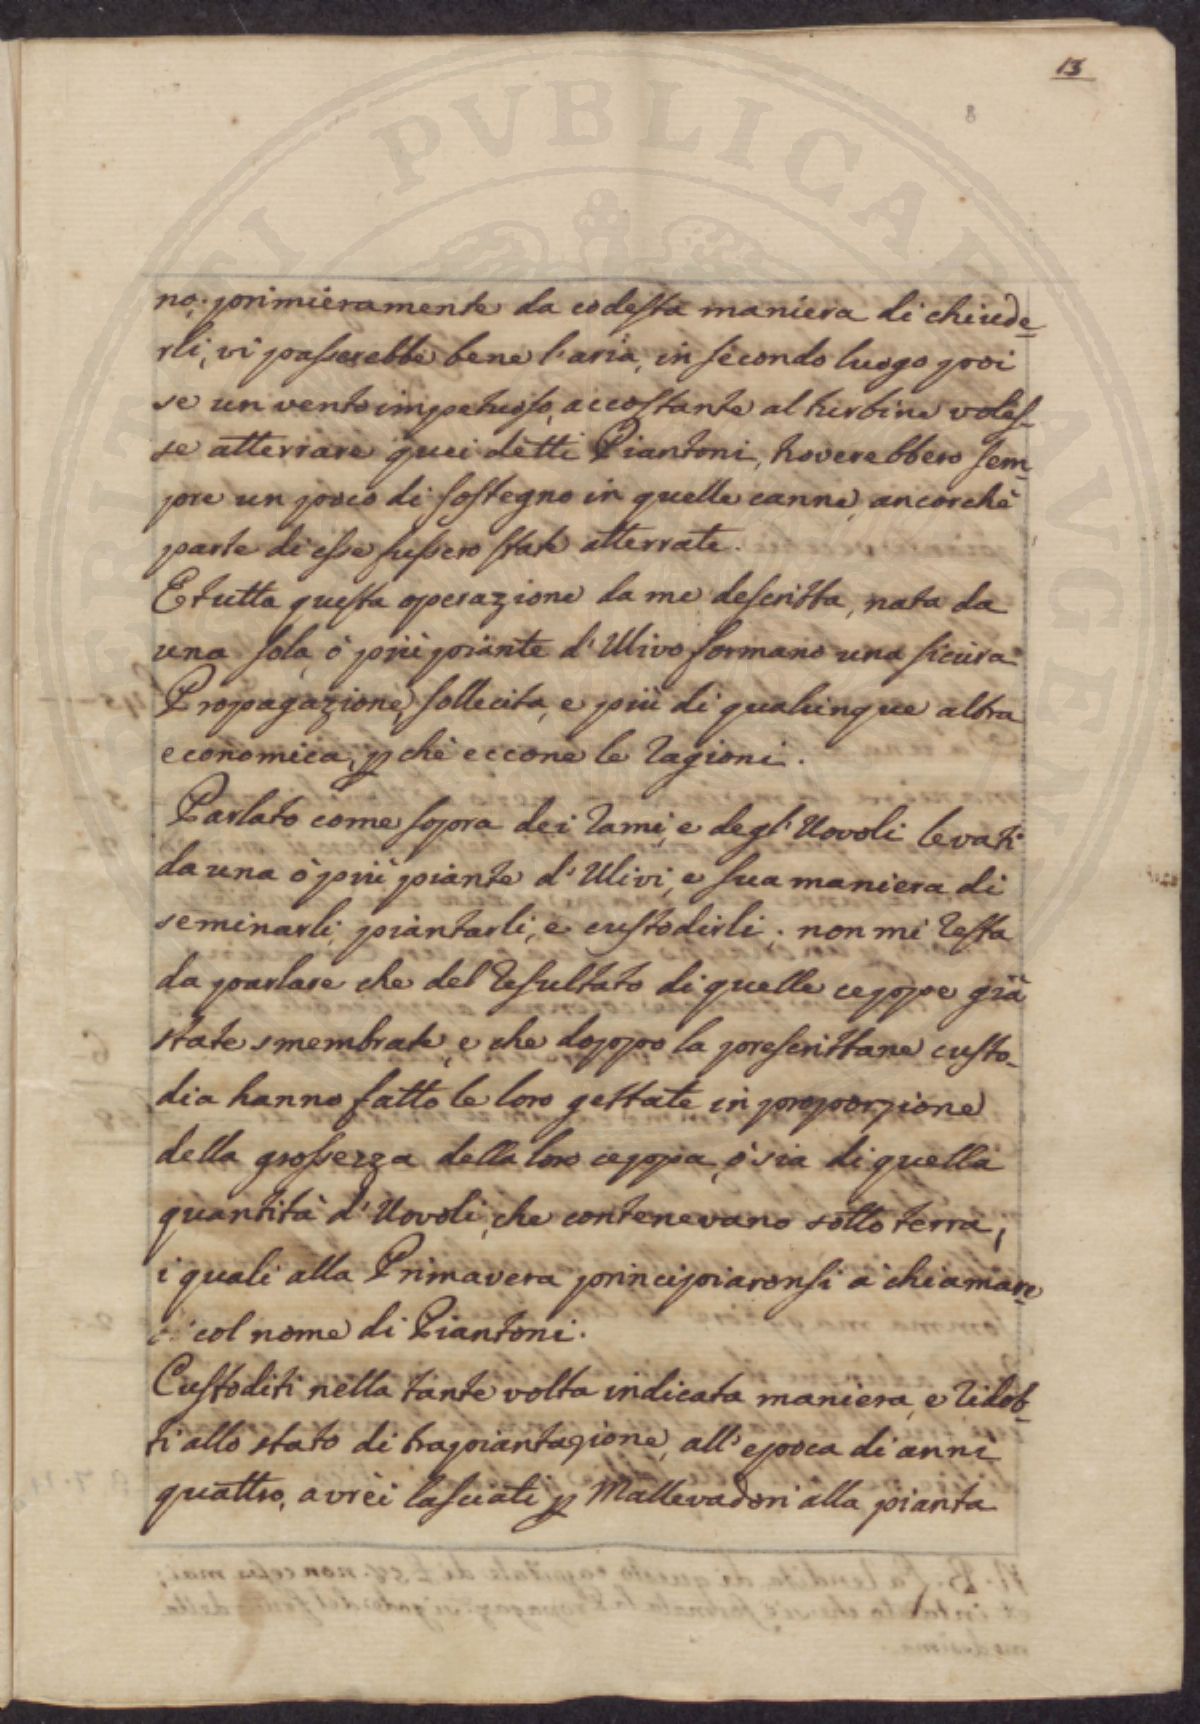 13
8
PERITI PVBLICAE AVGENT
no; primieramente da codesta maniera di chiude-
rli, vi passerebbe bene l'aria, in secondo luogo poi
se un vento impetuoso, accostante al turbine voles-
se atterrare quei detti Piantoni, troverebbero sem-
pre un poco di sostegno in quelle canne, ancorchè
parte di esse fussero state atterrate.
E tutta questa operazione da me descritta, nata da
una sola, ò più piante d'Ulivo formano una sicura
Propagazione, sollecita, e più di qualunque altra
economica, p chè eccone le ragioni.
Parlato come sopra dei rami, e degl'Uovoli levati
da una ò più piante d'Ulivi, e sua maniera di
seminarli, piantarli, e custodirli; non mi resta
da parlare che del resultato di quelle ceppe già
state smembrate, e che doppo la prescrittane custo-
dia hanno fatto le loro gettate in proporzione
della grossezza della loro ceppa, ò sia di quella
quantità d'Uovoli, che contenevano sotto terra,
i quali alla Primavera principiaronsi a chiamare
col nome di Piantoni.
Custoditi nella tante volta indicata maniera, e ridot-
ti allo stato di trapiantazione, all'epoca di anni
quattro, avrei lasciati p Mallevadori alla pianta